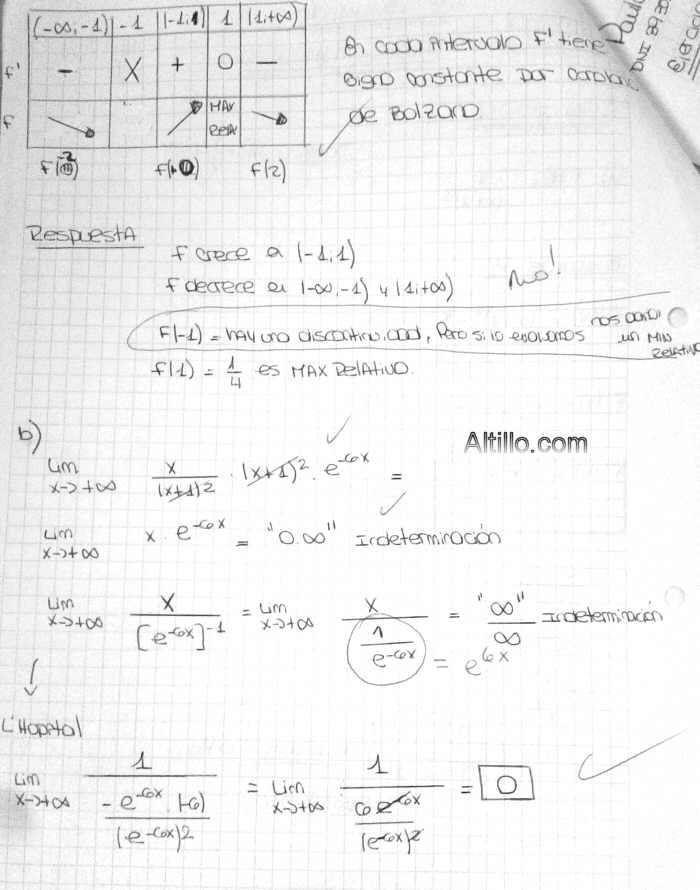 (-∞,-1) -1 (-1,1) 1 (1,+∞)
f' - X + 0 -
f MAX RelA
f(-2) f(0) f(2)
En cada intervalo f' tiene
signo constante por corolario
de Bolzano
Paula
DNI 39.
Ejercicio
RESPUESTA
f crece en (-1,1)
f decrece en (-∞,-1) y (1,+∞)
No!
f(-1) = hay una discontinuidad, Pero si lo
nos
un MIN
RELATIVO
f(1) = 1/4 es MAX RelAtivo.
b)
Altillo.com
Lim x→+∞ x/(x+1)2 · (x+1)2 · e^-6x =
Lim x→+∞ x · e^-6x = "0.∞" Indeterminación
Lim x→+∞ x/[e^-6x]^-1 = Lim x→+∞ x/(1/e^-6x) = "∞"/∞ Indeterminación
= e^6x
L'Hopital
Lim x→+∞ 1/(-e^-6x.(-6)/(e^-6x)2) = Lim x→+∞ 1/(6e^-6x/(e^-6x)2) = 0